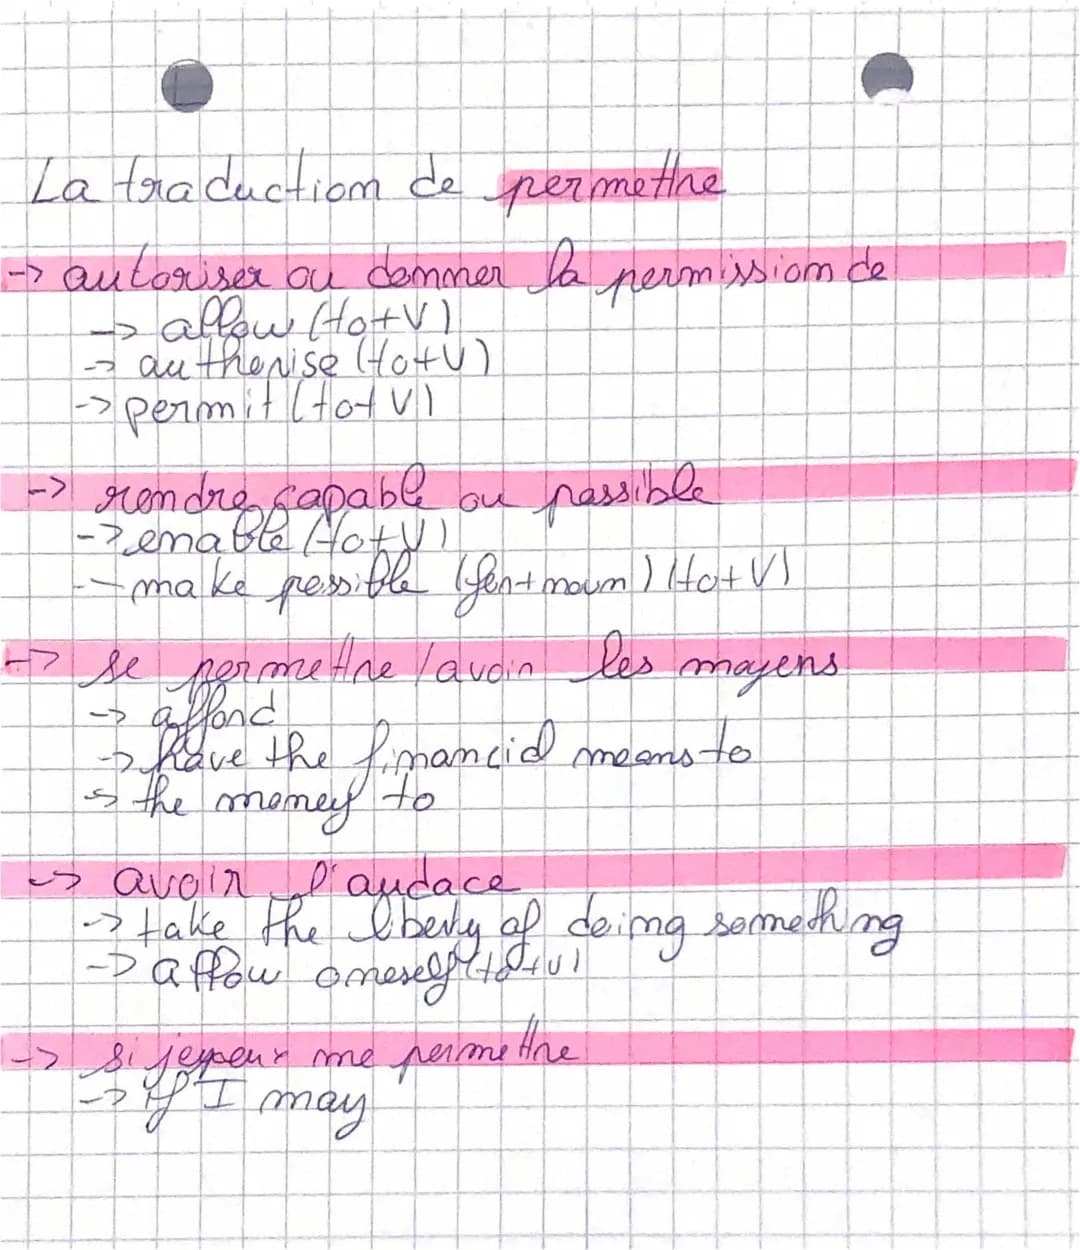 La traduction de permettre
-> autoriser ou donner la permission de
-> allow (to+V)
-> authorise (to+V)
-> permit (to+V)
-> rendre capable ou possible
-> enable (to+V)
- make possible (for+noun) (to+V)
-> se permettre / avoir les moyens
-> afford
-> have the financial means to
-> the money to
-> avoir l'audace
-> take the liberty of doing something
-> allow oneself (to+V)
-> si je peux me permettre
-> if I may